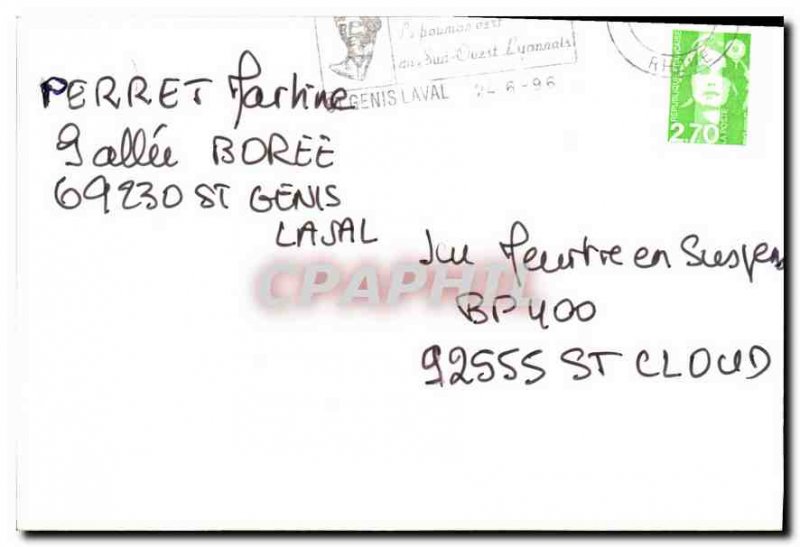 PERRET Martine
9 allée BORÉE
69230 ST GENIS
LAVAL
Le poumon vert
du Sud-Ouest Lyonnais
GENIS LAVAL 24-6-96
RHONE
REPUBLIQUE FRANCAISE
2,70
LA POSTE
Jeu Meurtre en Suspens
BP 400
92555 ST CLOUD
CPAPHIL